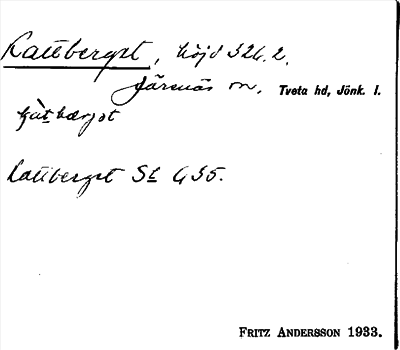 Kattberget, höjd 326.2.
Järsnäs sn. Tveta hd, Jönk. l.
Kattberget St G35.
FRITZ ANDERSSON 1933.